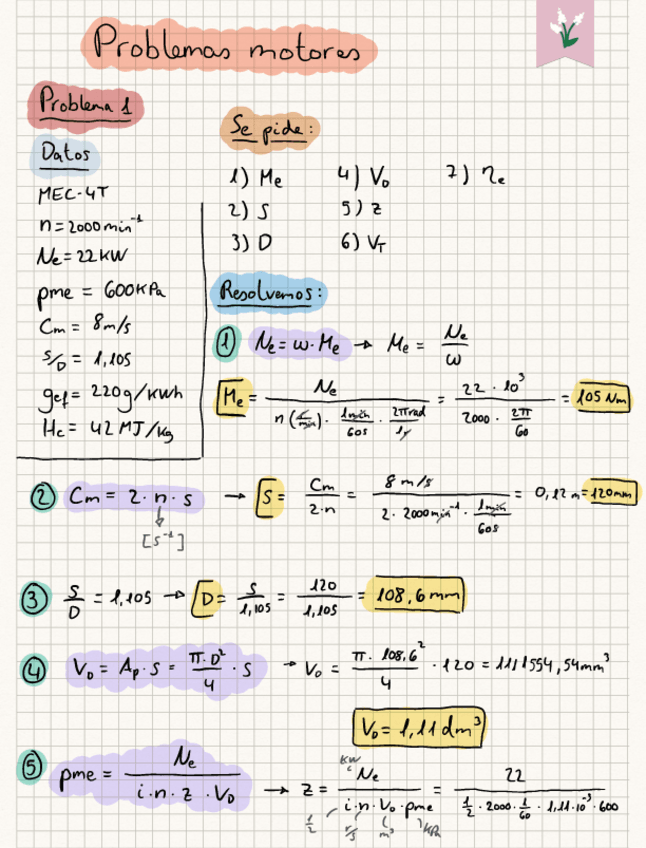 Problemas motores
Problema 1
Datos
MEC-4T
n = 2000 min⁻¹
Ne = 22 KW
pme = 600 KPa
Cm = 8 m/s
S/D = 1,105
gef = 220 g/KWh
Hc = 42 MJ/Kg
Se pide:
1) Me 4) VD 7) ηe
2) S 5) z
3) D 6) VT
Resolvemos:
① Ne = ω · Me → Me = Ne / ω
Me = Ne / (n (r/min) · 1 min/60s · 2π rad/1r) = 22 · 10³ / (2000 · 2π/60) = 105 Nm
② Cm = 2 · n · s → S = Cm / (2 · n) = 8 m/s / (2 · 2000 min⁻¹ · 1 min/60s) = 0,12 m = 120 mm
[s⁻¹]
③ S/D = 1,105 → D = S / 1,105 = 120 / 1,105 = 108,6 mm
④ VD = Ap · S = (π · D²) / 4 · S → VD = (π · 108,6²) / 4 · 120 = 1111554,54 mm³
VD = 1,11 dm³
⑤ pme = Ne / (i · n · z · VD) → z = Ne / (i · n · VD · pme) = 22 / (1/2 · 2000 · 1/60 · 1,11 · 10⁻³ · 600)
KW
1/2 r/s m³ KPa